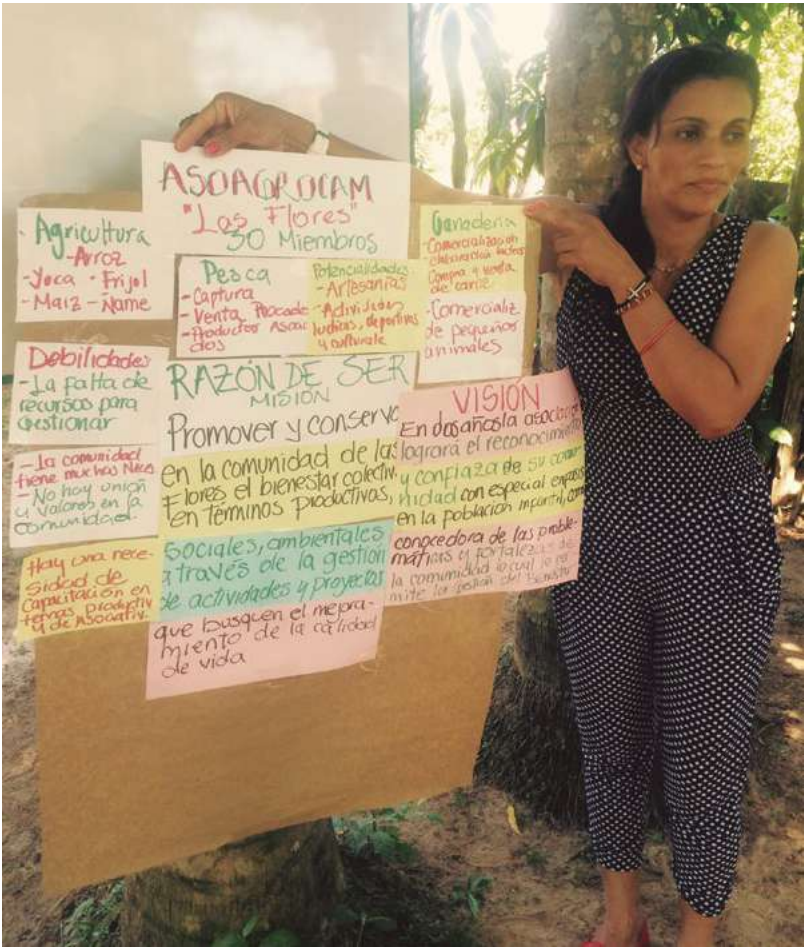 ASOAGROCAM
"Las Flores"
30 Miembros
Agricultura
-Arroz
-Yuca - Frijol
-Maiz -Ñame
Pesca
-Captura
-Venta
-Productos
dos
Potencialidades
-Artesanías
-Actividades
ludicas, deportivas
y culturale
Ganaderia
-Comercialización
Compra y venta
de carne
-Comercializ
de pequeños
animales
Debilidades
-La falta de
recursos para
Gestionar
-La comunidad
tiene muchas Nece
-No hay unión
y valores en la
comunidad.
Hay una nece-
sidad de
Capacitación en
temas productiv
y de Asociativ.
RAZÓN DE SER
MISIÓN
Promover y conserva
en la comunidad de las
Flores el bienestar colectiv
en términos productivos,
sociales, ambientales
a través de la gestión
de actividades y proyectos
que busquen el mejora-
miento de la calidad
de vida
VISIÓN
En dos años la asociac
logrará el reconocimiento
y confiaza de su comu
nidad con especial enfasis
en la población infantil, como
conocedora de las proble-
máticas y fortalezas de
la comunidad lo cual le per
mite la gestión del